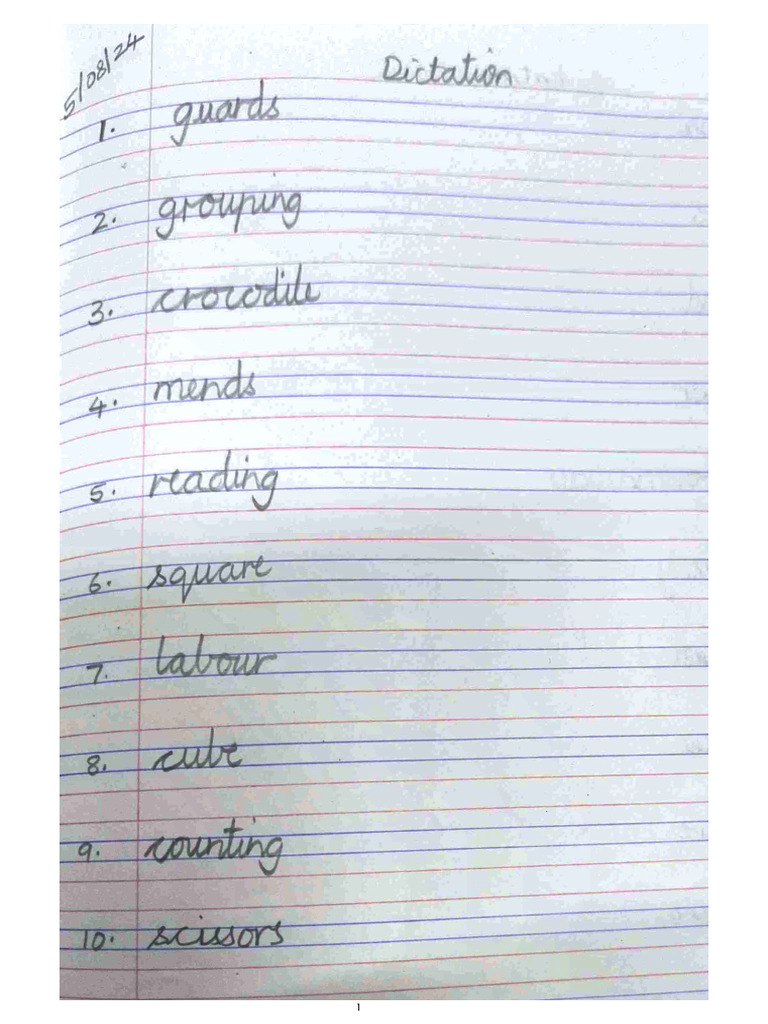 5/08/24
Dictation
1. guards
2. grouping
3. crocodile
4. mends
5. reading
6. square
7. labour
8. cube
9. counting
10. scissors
1